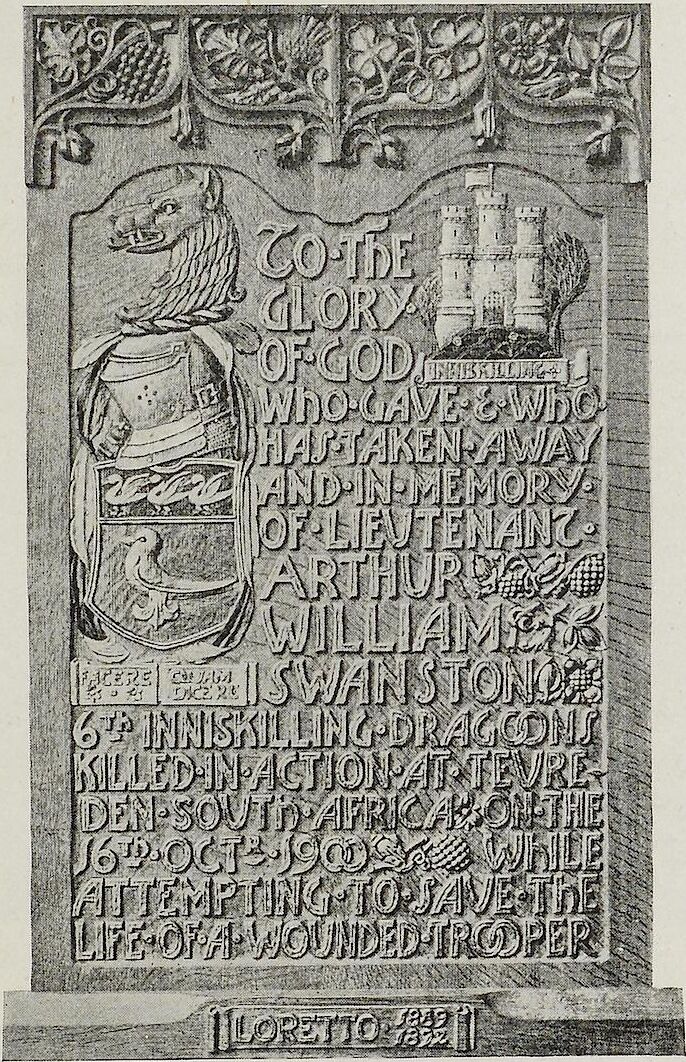 TO·THE
GLORY·
OF·GOD
INNISKILLING
WHO·GAVE·&·WHO
HAS·TAKEN·AWAY
AND·IN·MEMORY·
OF·LIEUTENANT·
ARTHUR
WILLIAM
SWANSTON
FACERE QUAM
DICERE
6TH INNISKILLING·DRAGOONS
KILLED·IN·ACTION·AT·TEVRE-
DEN·SOUTH·AFRICA·ON·THE
16TH·OCTR·1900 WHILE
ATTEMPTING·TO·SAVE·THE
LIFE·OF·A·WOUNDED·TROOPER
LORETTO· 1889
1892